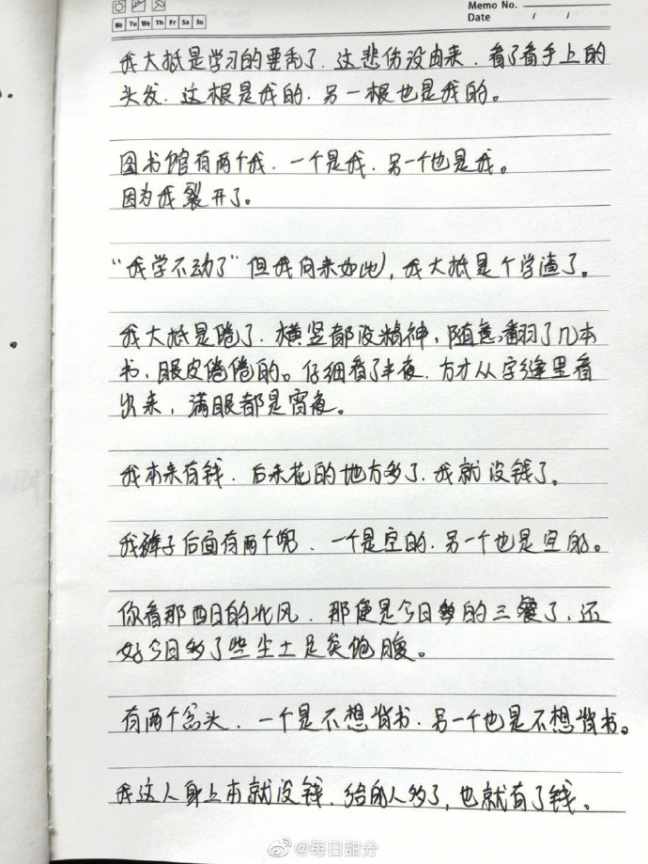 Memo No.
Mo Tu We Th Fr Sa Su
Date / /
我大抵是学习的要秃了.这悲伤没由来.看了看手上的
头发.这根是我的.另一根也是我的。
图书馆有两个我.一个是我.另一个也是我。
因为我裂开了。
“我学不动了”但我向来如此,我大抵是个学渣了。
我大抵是倦了.横竖都没精神,随意翻了几本
书,眼皮倦倦的。仔细看了半夜.方才从字缝里看
出来,满眼都是宵夜。
我本来有钱.后来花的地方多了.我就没钱了。
我裤子后面有两个兜.一个是空的.另一个也是空的。
你看那西日的北风.那便是今日的三餐了,还
好今日多了些尘土足矣饱腹。
有两个念头.一个是不想背书.另一个也是不想背书。
我这人身上本就没钱.给的人多了,也就有了钱。
@每日甜分